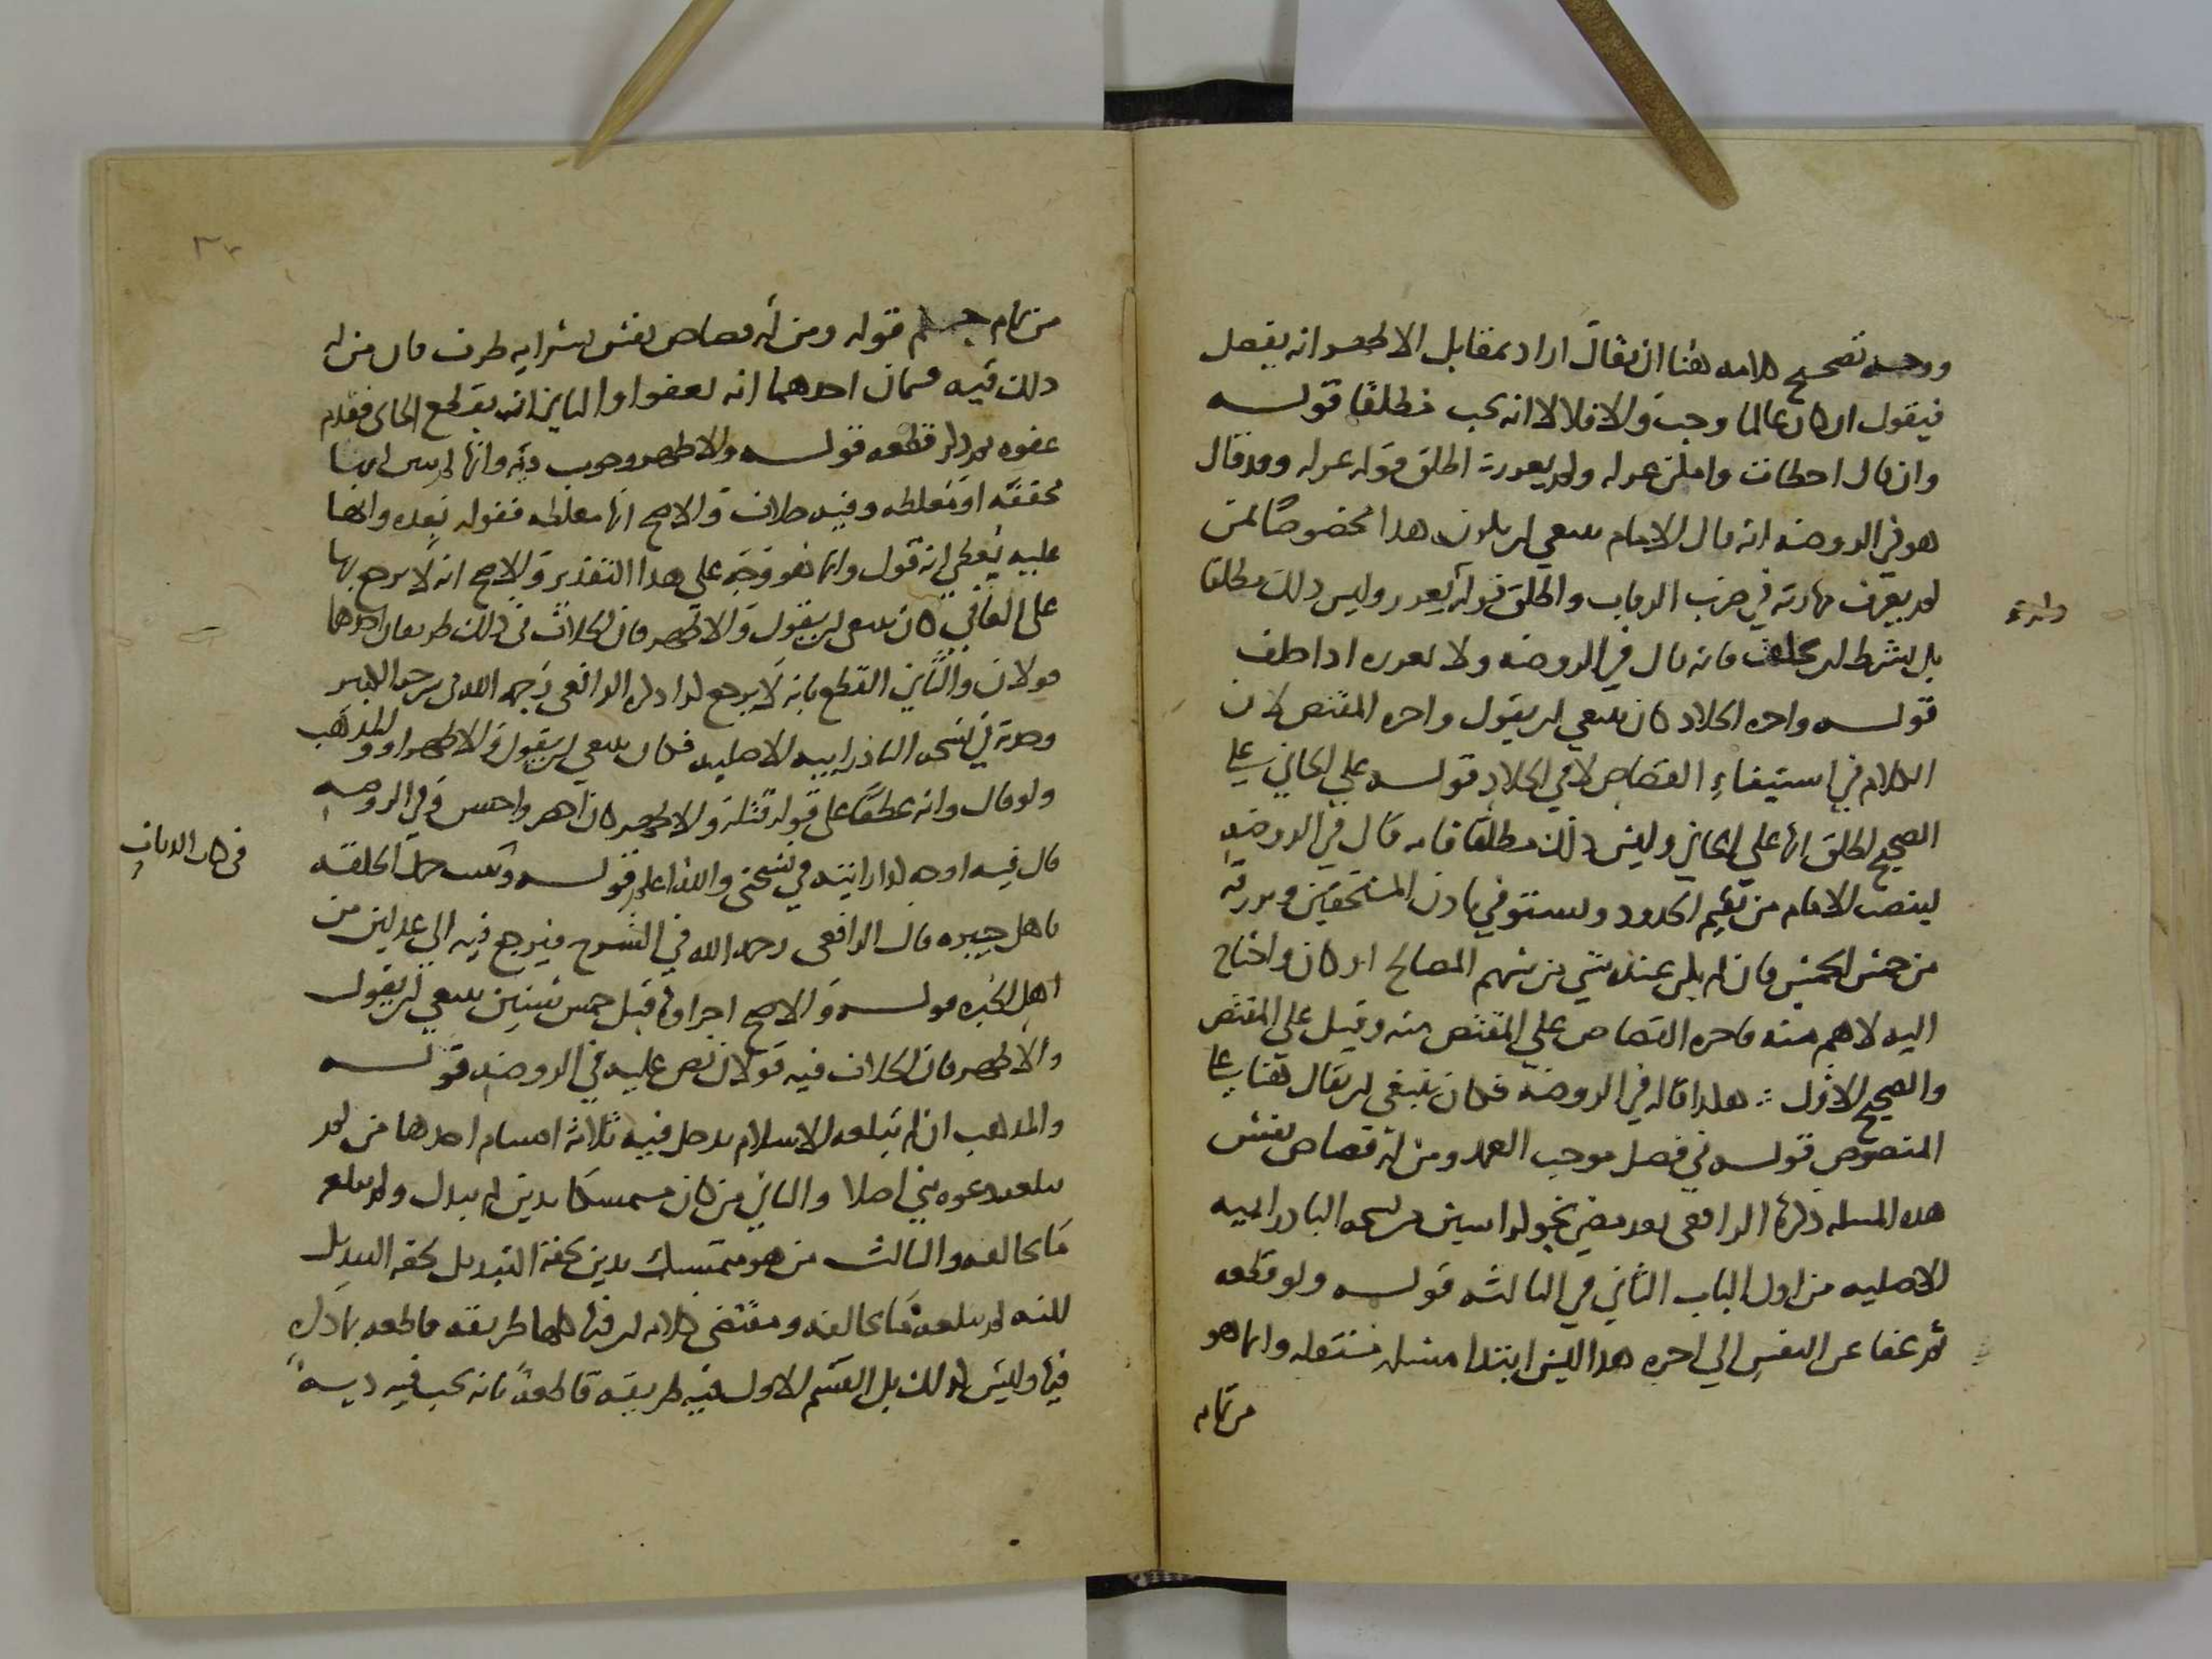 ووجه تصحيح كلامه هنا ان يقال اراد بمقابل الاظهر انه يفصل
فيقول ان كان عالما وجب والا فلا لا انه يجب مطلقا قولـه
وان قال اخطات وامكن عزله ولم يعزره اطلق قوله عزله وقد قال
هو في الروضه انه قال الامام ينبغي ان يكون هذا مخصوصا بمن
لم يعرف مهارته في ضرب الرقاب واطلق قوله يعزر وليس ذلك مطلقا
بل بشرط ان يحلف فانه قال في الروضه ولا يعزره اذا حلف
قولـه واجره الجلاد كان ينبغي ان يقول واجره المقتص لان
الكلام في استيفاء القصاص لا في الجلاد قولـه علي الجاني علي
الصحيح اطلق انها علي الجاني وليس ذلك مطلقا فانه قال في الروضه
لينصب الامام من يقيم الحدود ويستوفي باذن المستحقين ويرزقه
من خمس الخمس فان لم يكن عنده شي من سهم المصالح او كان واحتاج
اليه لاهم منه فاجره القصاص علي المقتص منه وقيل علي المقتص
والصحيح الاول هكذا قاله في الروضه فكان ينبغي ان يقال هنا علي
المنصوص قولـه في فصل موجب العمد ومن له قصاص نفس
هذه المسله ذكرها الرافعي بعد مضي نحو كراسين من نسخه الباذرابيه
الاصليه من اول الباب الثاني في الثالثه قولـه ولو قطعه
ثم عفا عن النفس الي اخره هذا ليس ابتدا مسله مستقله وانما هو
من تمام
من تمام قوله ومن له قصاص نفس بسرايه طرف فان من له
ذلك فيه قسمان احدهما انه يعفوا والثاني انه يقطع الجاني فقدم
عفوه ثم ذكر قطعه قولـه والاظهر وجوب ديه وانها
مخففه او مغلظه وفيه خلاف والاصح انها مغلظه فقوله بعده وانها
عليه يعطي انه قول وانما هو وجه علي هذا التقدير والاصح انه لا يرجع بها
علي العافي كان ينبغي ان يقول والاظهر فان الخلاف في ذلك طريقان احدهما
قولان والثاني القطع بانه لا يرجع كذا ذكره الرافعي رحمه الله في شرحه الكبير
وجدته في نسخه الباذرابيه الاصليه فكان ينبغي ان يقول والاظهر او والمذهب
ولو قال وانه عطفا علي قوله قبله والاظهر كان اخصر واحسن وفي الروضه
قال فيه اوجه كذا رايته في نسختي والله اعلم قولـه ويثبت حمل الخلقه
في كتاب الديات
باهل خبره قال الرافعي رحمه الله في الشرح فيرجع فيه الي عدلين من
اهل الخبره قولـه والاصح اجزاوها قبل خمس سنين ينبغي ان يقول
والاظهر فان الخلاف فيه قولان نص عليه في الروضه قولـه
والمذهب ان لم تبلغه الاسلام يدخل فيه ثلاثه اقسام احدها من لم
تبلغه دعوه نبي اصلا والثاني من كان متمسكا بدين لم يبدل ولم يبلغه
ما يخالفه والثالث من هو متمسك بدين لحقه التبديل
لكنه لم يبلغه ما يخالفه ومقتضي كلامه ان فيها كلها طريقه قاطعه بما ذكر
فيها وليس كذلك بل القسم الاول فيه طريقه قاطعه بانه يجب فيه ديه